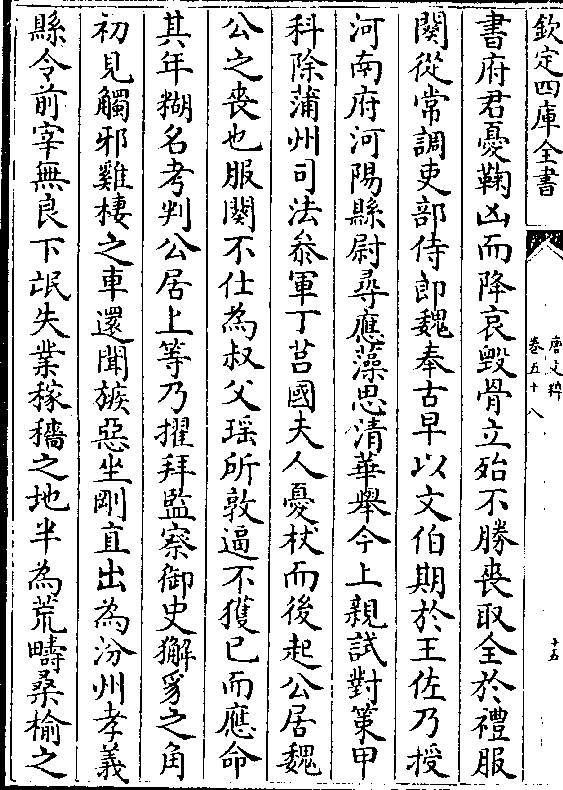 欽定四庫全書
唐文粹
卷五十八
十五
書府君憂鞠凶而降哀毀骨立殆不勝喪取全於禮服
闋從常調吏部侍郎魏奉古早以文伯期於王佐乃授
河南府河陽縣尉尋應藻思清華舉今上親試對策甲
科除蒲州司法叅軍丁莒國夫人憂杖而後起公居魏
公之喪也服闋不仕為叔父瑶所敦逼不獲已而應命
其年糊名考判公居上等乃擢拜監察御史獬豸之角
初見觸邪雞棲之車還聞嫉惡坐剛直出為汾州孝義
縣令前宰無良下氓失業稼穡之地半為荒疇桑榆之